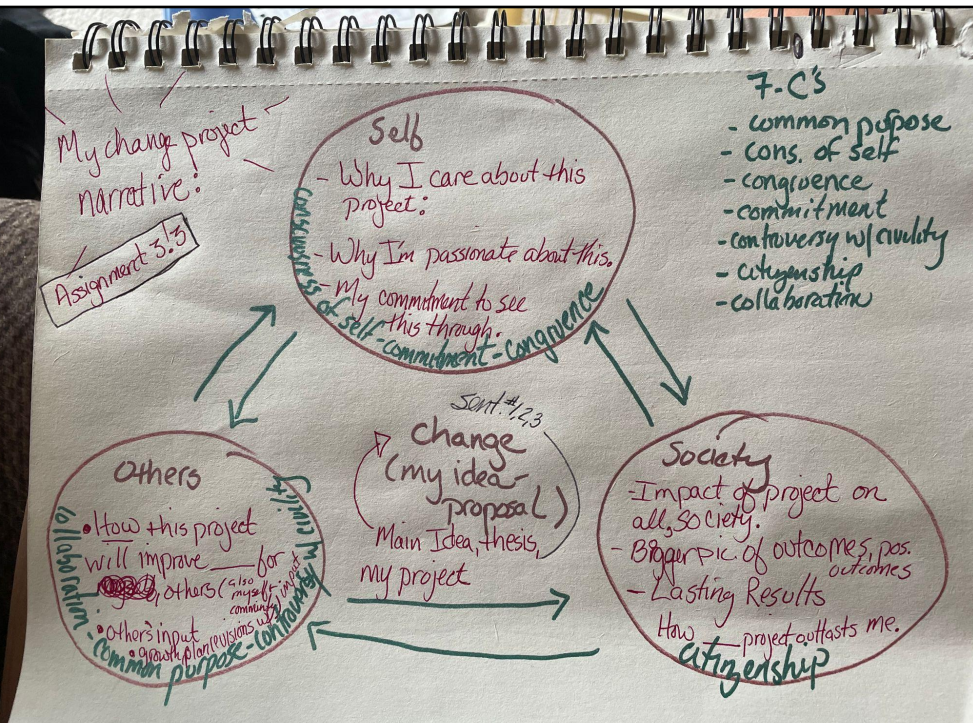 My change project
narrative:
Assignment 3.3
Self
- Why I care about this
project:
- Why I'm passionate about this.
- My commitment to see
this through.
consciousness of self-commitment-congruence
7-C's
- common purpose
- cons. of self
- congruence
- commitment
- controversy w/ civility
- citizenship
- collaboration
sent. #1,2,3
Change
(my idea-
proposal)
Main Idea, thesis,
my project
Others
• How this project
will improve ___ for
others (also
myself,
community
• others input
• growth plan/revisions w/ input
collaboration-common purpose-controversy w/ civility
Society
- Impact of project on
all, society.
- Bigger pic of outcomes, pos.
outcomes
- Lasting Results
How ___ project outlasts me.
citizenship